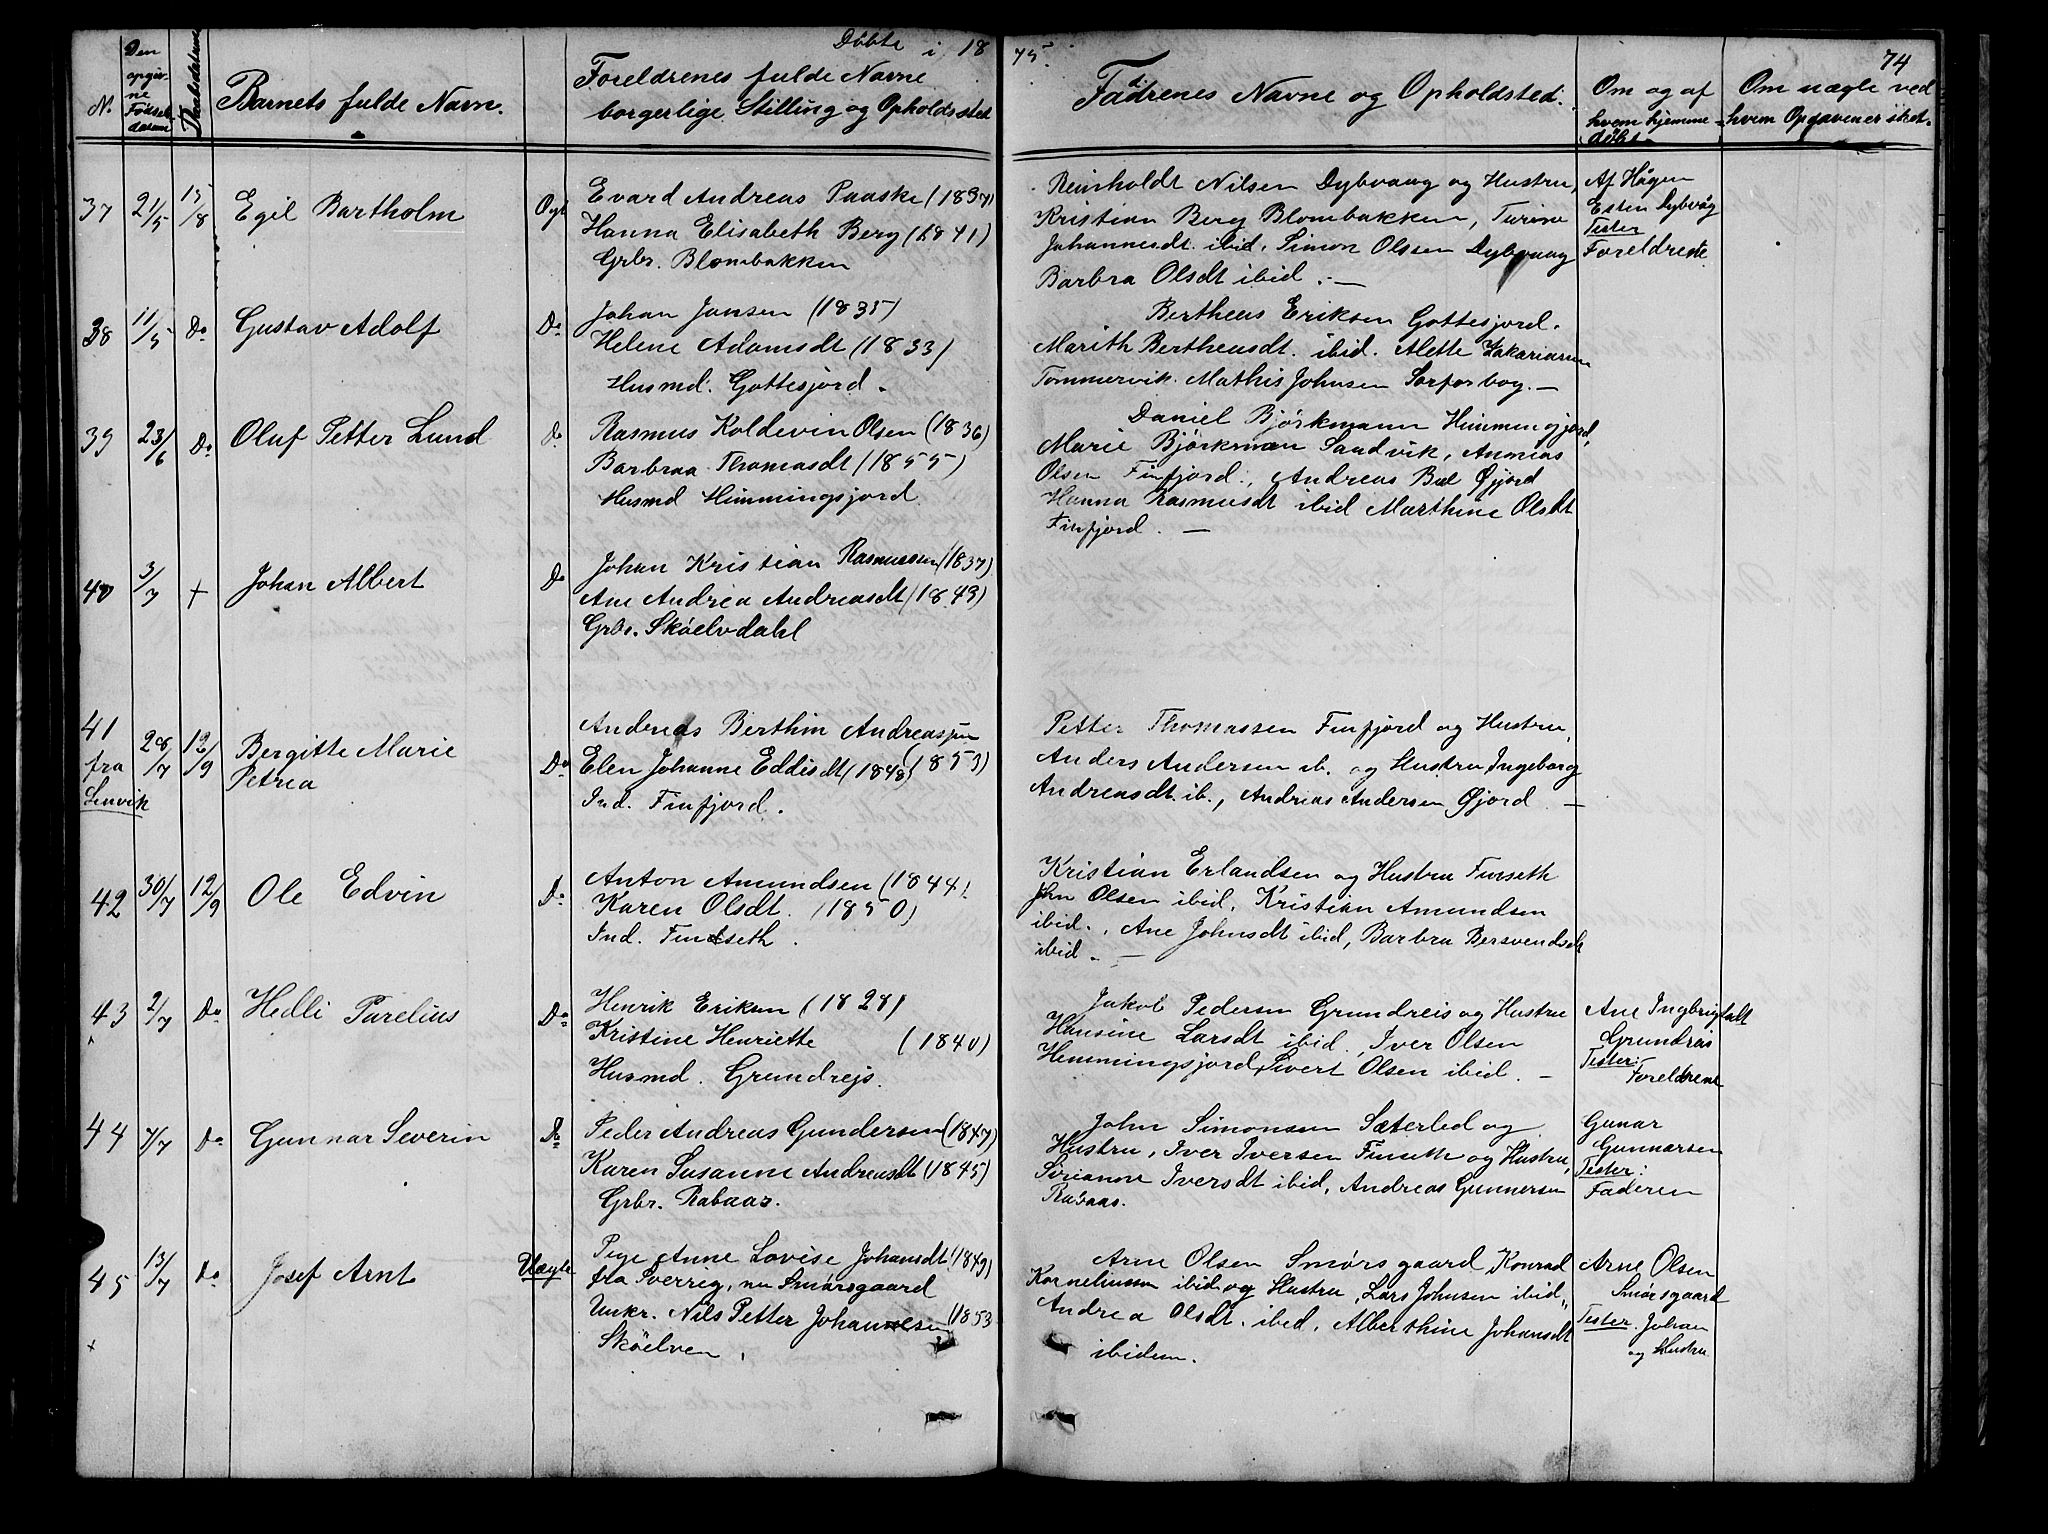 Døbte i 18 75.
74
N.
Den opgivne Fødselsdatum
Daabsdatum
Barnets fulde Navn.
Foreldrenes fulde Navne
borgerlige Stilling og Opholdssted
Faddrenes Navne og Opholdsted.
Om og af
hvem hjemme-
døbt
Om nægle ved
hvem Opgaven er skeet.
37 21/5 15/8 Egil Bartholm Ægt
Evard Andreas Paaske (1837)
Hanna Elisabeth Berg (1841)
Grbr. Blombakken
Reinholdt Nilsen Dybvaag og Hustru,
Kristian Berg Blombakken, Turine
Johannesdt. ibid, Simon Olsen Dybvaag
Barbra Olsdt ibid. —
Af Hågen
Esten Dybvåg
Tester
Foreldrene
38 11/5 Do Gustav Adolf Do
Johan Jansen (1835)
Helene Adamsdt (1833)
Husmd. Gottesjord.
Bertheus Eriksen Gottesjord.
Marith Bertheusdt. ibid. Alette Zakariasen
Tommervik. Mathis Johnsen Sorforbog. —
39 23/6 Do Oluf Petter Lund Do
Rasmus Koldevin Olsen (1836)
Barbraa Thomasdt (1855)
Husmd Himmingsjord
Daniel Bjørkmann Himmingjord,
Marie Bjørkman Sandvik, Ananias
Olsen Finfjord, Andreas Bul Øjord
Hanna Rasmusdt ibid Marthine Olsdt
Finfjord. —
40 3/7 + Johan Albert Do
Johan Kristian Rasmussen (1837)
Ane Andrea Andreasdt (1849)
Grbr. Skøelvdahl
41
fra
Lenvik
28/7 12/9 Bergitte Marie
Petrea Do
Andreas Berthin Andreassen
(1853)
Elen Johanne Eddisdt (1848)
Ind. Finfjord.
Petter Thomassen Finfjord og Hustru,
Anders Andersen ib. og Hustru Ingeborg
Andreasdt. ib., Andreas Andersen Øjord. —
42 30/7 12/9 Ole Edvin Do
Anton Amundsen (1844)
Karen Olsdt. (1850)
Ind. Finseth.
Kristian Erlandsen og Hustru Furseth
John Olsen ibid, Kristian Amundsen
ibid., Ane Johnsdt ibid, Barbra Bersvendsdt
ibid. —
43 2/7 Do Hedli Parelius Do
Henrik Eriksen (1828)
Kristine Henriette (1840)
Husmd. Grundrejs.
Jakob Pedersen Grundreis og Hustru
Hansine Larsdt ibid, Iver Olsen
Hemmingsjord, Sivert Olsen ibid. —
Ane Ingbrigtsdt
Grundrais
Tester:
Foreldrene
44 7/7 Do Gunnar Severin Do
Peder Andreas Gundersen (1847)
Karen Susanne Andreasdt (1845)
Grbr. Rabaas.
John Simonsen Sæterbed og
Hustru, Iver Iversen Finseth og Hustru,
Sirianne Iversdt ibid, Andreas Gunnersen
Rabaas.
Gunar
Gunnarsen
Tester:
Faderen
45 13/7 Do Josef Arnt Uægte
Pige Anne Lovise Johansdt (1849)
fra Sverrig, nu Smørsgaard
Unkr. Nils Petter Johannesen (1853
Skøelven.
Arne Olsen Smørsgaard, Konrad
Korneliussen ibid, og Hustru, Lars Johnsen ibid,
Andrea Olsdt. ibid, Alberthine Johansdt
ibidem.
Arne Olsen
Smørsgaard
Tester. Johan
og Hustru